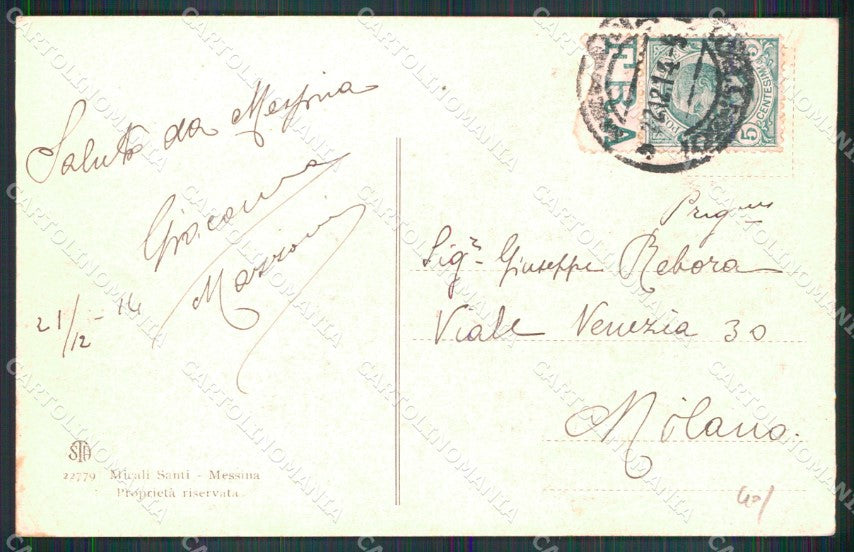 Saluto da Messina
Giacomina
21/12 - 14
22779 Micali Santi - Messina
Proprietà riservata.
CENTESIMI
5
12.14
Sigr. Giuseppe Rebora
Viale Venezia 30
Milano.
CARTOLINOMANIA